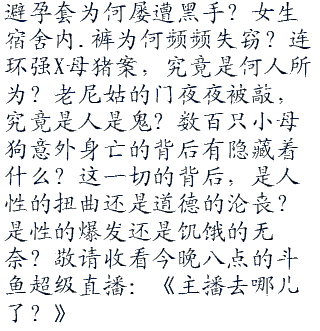 避孕套为何屡遭黑手？女生
宿舍内.裤为何频频失窃？连
环强X母猪案，究竟是何人所
为？老尼姑的门夜夜被敲，
究竟是人是鬼？数百只小母
狗意外身亡的背后有隐藏着
什么？这一切的背后，是人
性的扭曲还是道德的沦丧？
是性的爆发还是饥饿的无
奈？敬请收看今晚八点的斗
鱼超级直播：《主播去哪儿
了？》